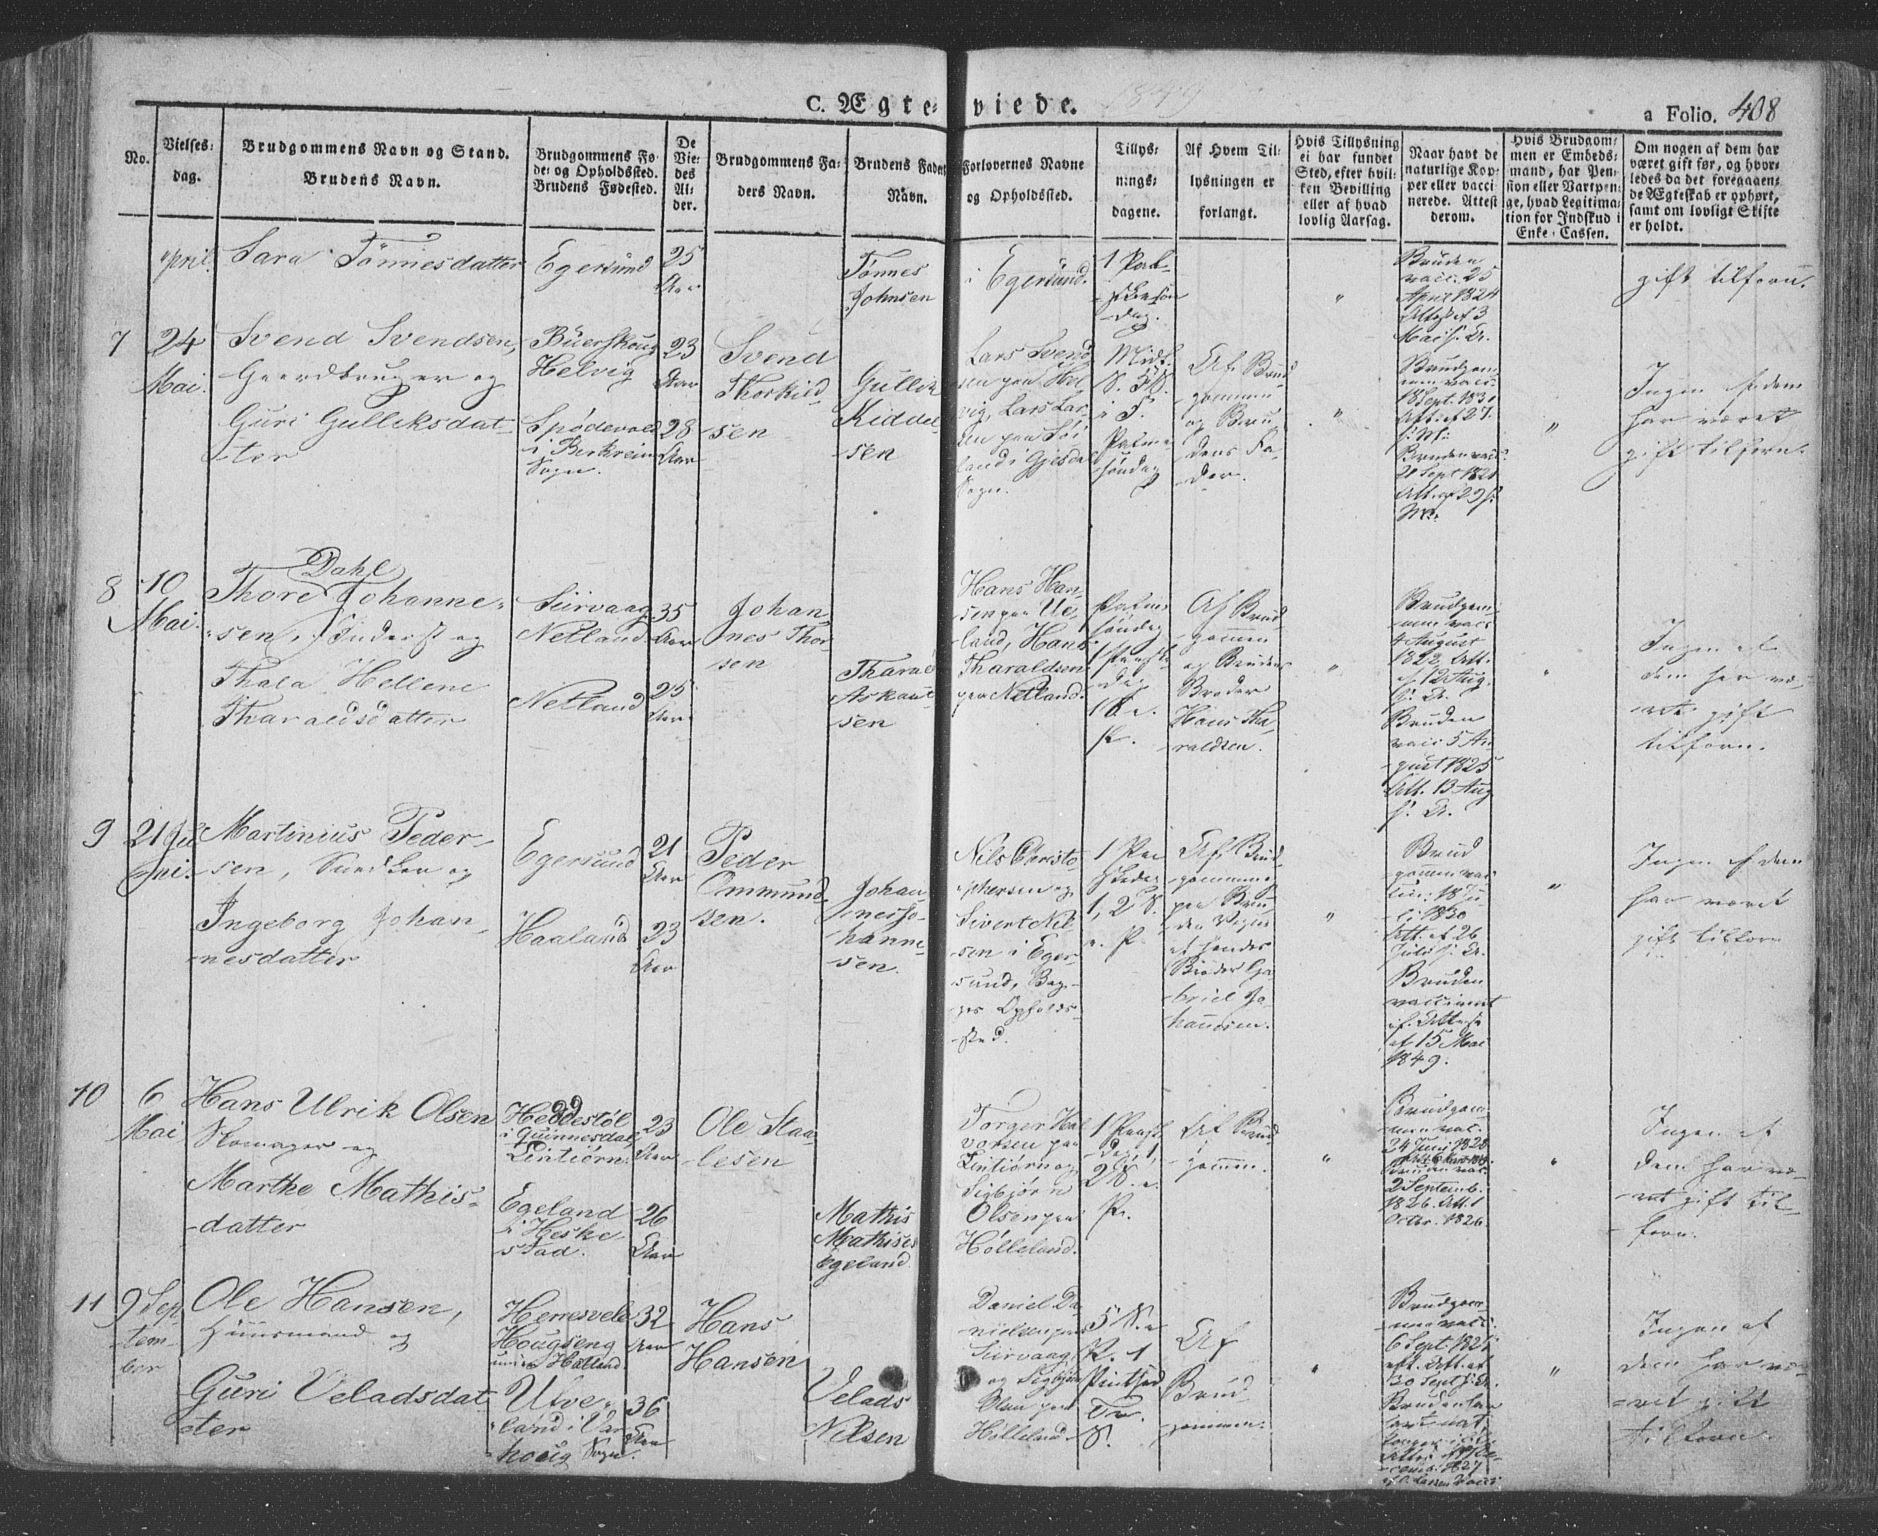 C. Ægte-viede. 1849
a Folio. 408
No.
Vielses-
dag.
Brudgommens Navn og Stand.
Brudens Navn.
Brudgommens Fø-
de- og Opholdssted.
Brudens Fødested.
De
Vie-
des
Al-
der.
Brudgommens Fa-
ders Navn.
Brudens Faders
Navn.
Forlovernes Navne
og Opholdssted.
Tillys-
nings-
dagene.
Af Hvem Til-
lysningen er
forlangt.
Hvis Tillysning
ei har fundet
Sted, efter hvil-
ken Bevilling
eller af hvad
lovlig Aarsag.
Naar havt de
naturlige Kop-
per eller vacci-
nerede. Attest
derom.
Hvis Brudgom-
men er Embeds-
mand, har Pen-
sion eller Vartpen-
ge, hvad Legitima-
tion for Indskud i
Enke-Cassen.
Om nogen af dem har
været gift før, og hvor-
ledes da det foregaaen-
de Ægteskab er ophørt,
samt om lovligt Skifte
er holdt.
april.
Sara Tønnesdatter
Egersund
25
Aar
Tønnes
Johnsen
i Egersund.
1 Paa-
skesøn-
dag.
"
Bruden
vacc. 25
April 1824
Attest af 3
Mai s. A.
gift tilforn.
7
24
Mai.
Svend Svendsen,
Gaardbruger og
Guri Gulliksdat-
ter
Büerskoug
Helvig
Spødevold
i Birkreim
Sogn.
23
Aar
28
Aar
Svend
Thorkild-
sen
Gullik
Kiddel-
sen
Lars Svend-
sen paa Hel-
vig, Lars Lar-
sen paa
land i Gjesdal
Sogn.
Midf.
S. 5 S.
i F.
Palme-
søndag
Af Brud-
gommen
og Bru-
dens Fa-
der.
"
Brudgom-
men vacc.
18 Sept. 1830
Att. af 27
s. M.
Bruden vacc.
21 Sept 1821
Att. af 29 s.
M.
"
Ingen af dem
har været
gift tilforn.
8
10
Mai.
Dahl
Thore Johanne-
sen, Inderst og
Thala Hellene
Tharaldsdatter
Siirvaag
Netland
Netland
35
Aar
25
Aar
Johan-
nes Thor-
sen
Tharald
Askaut-
sen
Hans Han-
sen paa Ue-
land, Hans
Tharaldsen
paa Netland.
Palme-
søndag
1 Paaske-
dag
1 S. e.
P.
Af Brud-
gommen
og Brudens
Broder
Hans Tha-
raldsen.
"
Brudgom-
men vacc.
4 August
1822 Att.
af 12 Aug.
s. A.
Bruden
vacc 5 Au-
gust 1825
Att. 13 Aug
s. A.
"
Ingen af
dem har væ-
ret gift
tilforn.
9
21 Ju-
ni.
Martinius Peder-
sen, og
Ingeborg Johan-
nesdatter
Egersund
Haaland
21
Aar
23
Aar
Peder
Ommund-
sen.
Johan-
nes Jo-
hanne-
sen.
Nils Christo-
phersen og
Sivert Nil-
sen i Eger-
sund, Beg-
ges Opholds-
sted.
1 Paa-
skedag
1, 2 S.
e. P.
Af Brud-
gommen
paa Bru-
dens Vegne
af hendes
Broder Ga-
briel Jo-
hannesen.
"
Brud-
gommen vac-
cin. 18 Ju-
li 1830
Att. af 26
Juli s. A.
Bruden
vaccineret
if. Attest
af 15 Mai
1849.
"
Ingen af dem
har været
gift tilforn
10
6
Mai
Hans Ulrik Olsen
Skomager og
Marthe Mathis-
datter
Heddestøl
i Quinnesdal,
Lintiørn.
Egeland
i Heske-
stad.
23
Aar
26
Aar
Ole Staa-
lesen
Mathis
Mathisen
Egeland
Torger Hal-
vorsen paa
Lintiørn og
Sigbjørn
Olsen paa
Hølleland.
1 Paaske-
dag, 1,
2 S. e.
P.
Af Brud-
gommen.
"
Brudgom-
men vacc.
24 Juni 1828
Bruden vacc.
2 Septemb.
1826. Att. 1
Octbr. 1826.
"
Ingen af
dem har væ-
ret gift til-
forn.
11
9 Sep-
tem-
ber
Ole Hansen,
Huusmand og
Guri Veladsdat-
ter
Herresvele
Hougseng
under Hølland
Utve-
land i Var-
houg Sogn.
32
Aar
36
Aar
Hans
Hansen
Velads
Nilsen
Daniel Da-
nielsen paa
Siirvaag
og Sigbjørn
Olsen paa
Hølleland
5 S. e
P. 1
Pintsed.
Tr.
S.
Af
Brud-
gommen.
"
Brudgom-
men vacc.
6 Sept. 1821
Att. af
30 Sept s. A.
Bruden
1827
"
Ingen af
dem har væ-
ret gift
tilforn.